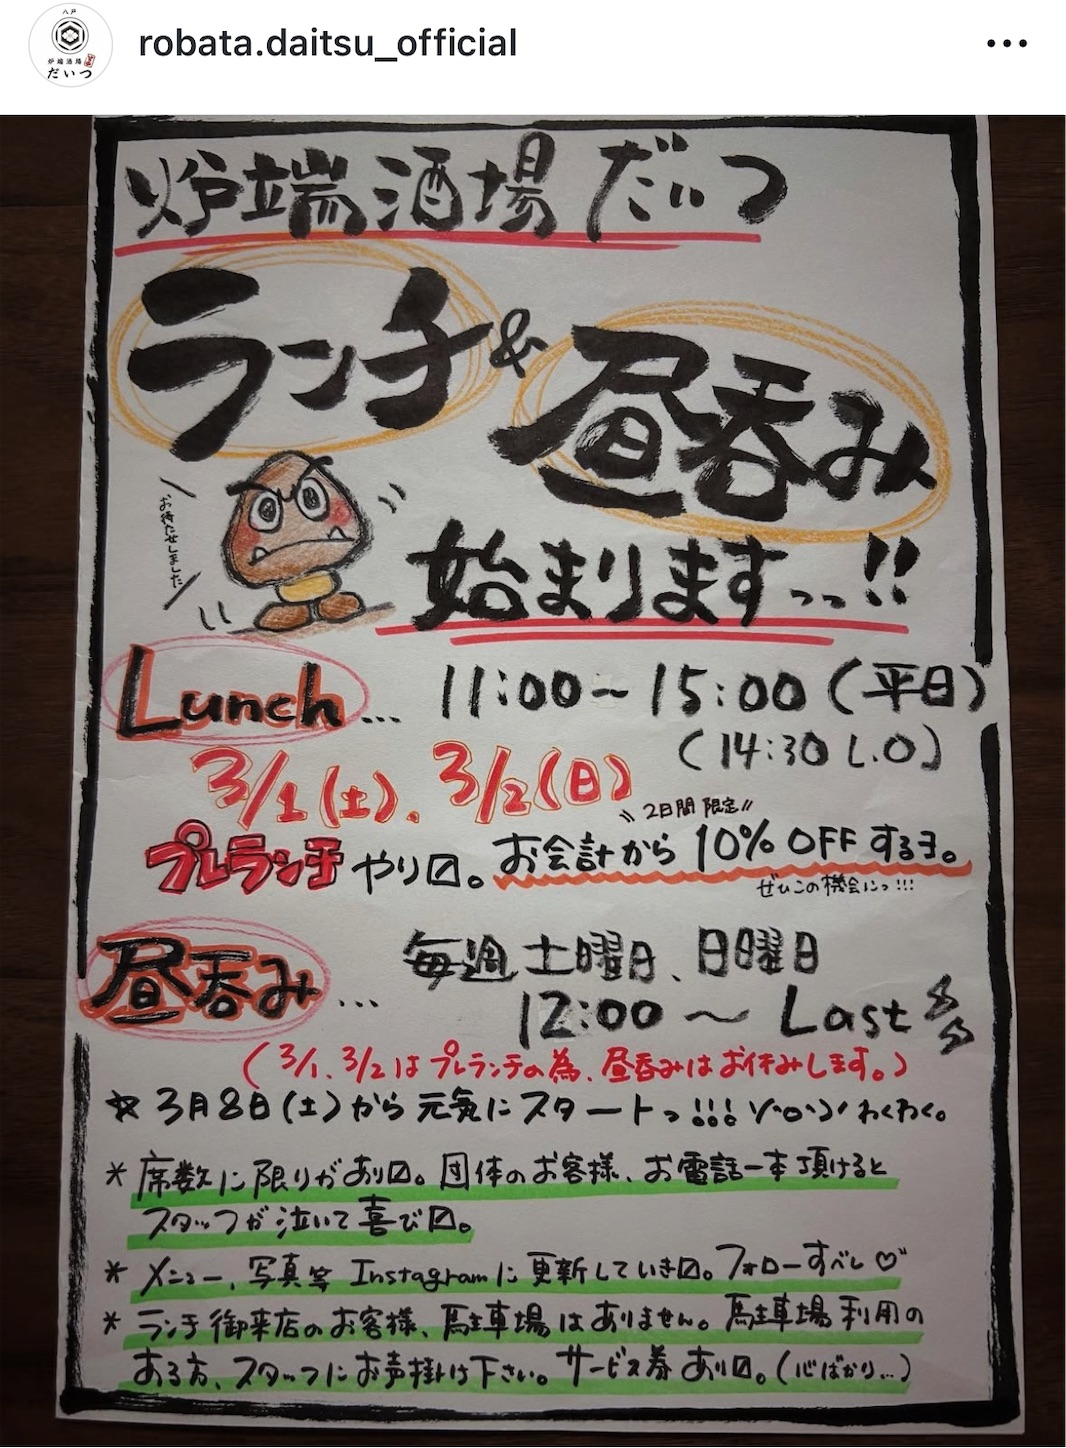 八戸
炉端酒場
だいつ
robata.daitsu_official
炉端酒場 だいつ
ランチ & 昼呑み
お待たせしました
始まりますっっ!!
Lunch... 11:00～15:00 (平日)
(14:30 L.O)
3/1(土)、3/2(日)
2日間限定!!
プレランチ やり〼。お会計から 10% OFF するヨ。
ぜひこの機会にっ!!!
昼呑み... 毎週 土曜日、日曜日
12:00 ～ Last
(3/1、3/2は プレランチの為、昼呑みは お休みします。)
☆ 3月8日(土)から 元気に スタートっ!!! ソ・ロ・ソ・ロ わくわく。
* 席数に限りがあり〼。団体のお客様、お電話一本頂けると
スタッフが泣いて喜び〼。
* メニュー、写真等 Instagramに更新していき〼。フォローすべし♡
* ランチ御来店のお客様、駐車場はありません。駐車場利用の
ある方、スタッフにお声掛け下さい。サービス券あり〼。(心ばかり...)